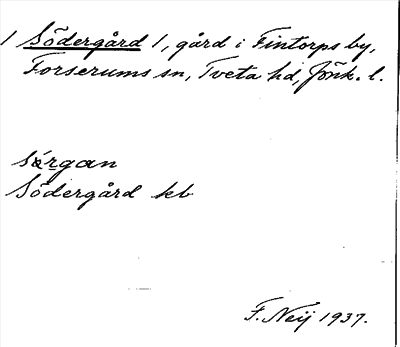 1 Södergård 1, gård i Fintorps by,
Forserums sn, Tveta hd, Jönk. l.
sǿrgan
Södergård kb
F. Neij 1937.